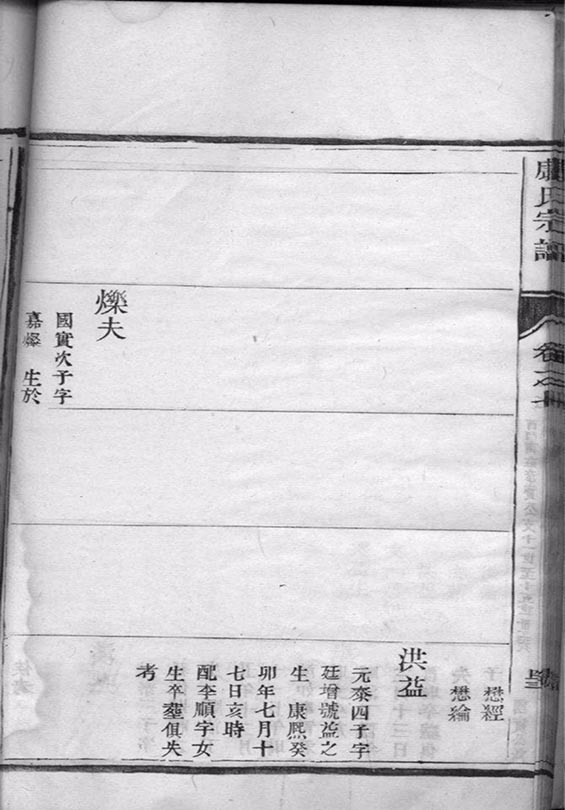 氏宗譜
卷之十
子懋經
懋綸
洪益
元泰四子字
廷增號益之
生康熙癸
卯年七月十
七日亥時
配李順字女
生卒塟俱失
考
爍夫
國實次子字
嘉燦生於